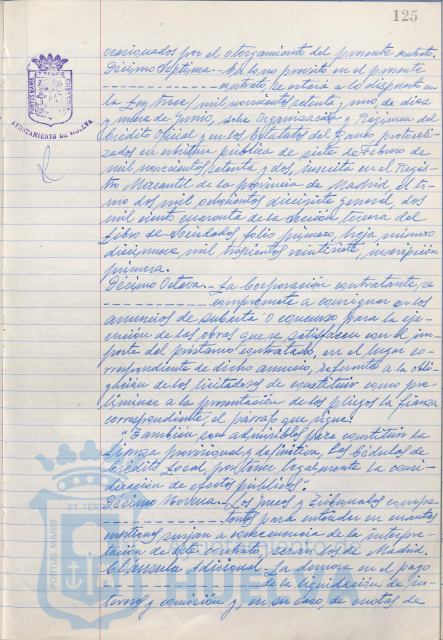 125
AYUNTAMIENTO DE HUELVA
ocasionados por el otorgamiento del presente contrato.
Décimo Septima.- En lo no previsto en el presente
contrato, se estará a lo dispuesto en
la Ley trece/mil novecientos setenta y uno, de diez
y nueve de Junio, sobre Organización y Régimen del
Crédito Oficial y en los Estatutos del Banco protocoli-
zados en escritura pública de siete de Febrero de
mil novecientos setenta y dos, inscrita en el Regis-
tro Mercantil de la provincia de Madrid, al to-
mo dos mil ochocientos diecisiete general, dos
mil ciento cuarenta de la Sección tercera del
Libro de Sociedades folio primero, hoja número
diecinueve mil trescientos veintisiete, inscripción
primera.
Décimo Octava.- La Corporación contratante, se
compromete a consignar en los
anuncios de subasta o concurso para la eje-
cución de las obras que se satisfacen con el im-
porte del préstamo contratado, en el lugar co-
rrespondiente de dicho anuncio, referente a la obli-
gación de los licitadores de constituir como pre-
liminar a la presentación de los pliegos la fianza
correspondiente, el párrafo que sigue:
"También son admisibles para constituir la
fianza provisional y definitiva, las Cédulas de
Crédito Local, por tener legalmente la consi-
deración de efectos públicos".
Décimo Novena.- Los Jueces y Tribunales compe-
tentes para entender en cuantas
cuestiones surjan a consecuencia de la interpre-
tación de este contrato, serán los de Madrid.
Cláusula Adicional.- La demora en el pago
de la liquidación de in-
tereses y comisión y, en su caso, de cuotas de